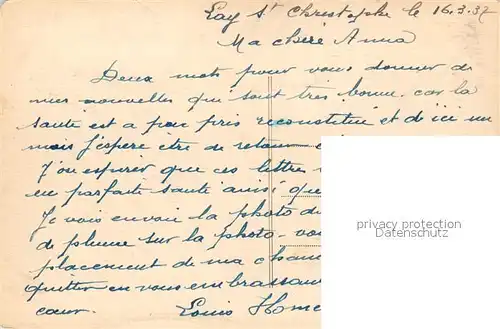 Lay St Christophe le 16.3.37
Ma chère Anna
Deux mots pour vous donner de
mes nouvelles qui sont très bonne. car la
santé est a peux pris reconstitué et d'ici un
mois J'espère être de retour
J'ou espérer que ces lettre
en parfaite santé ainsi que
Je vois envoie la photo de
de plume sur la photo. vou
placement de ma cham
quitter en vous embrassan
cœur. Louis Home
privacy protection
Datenschutz